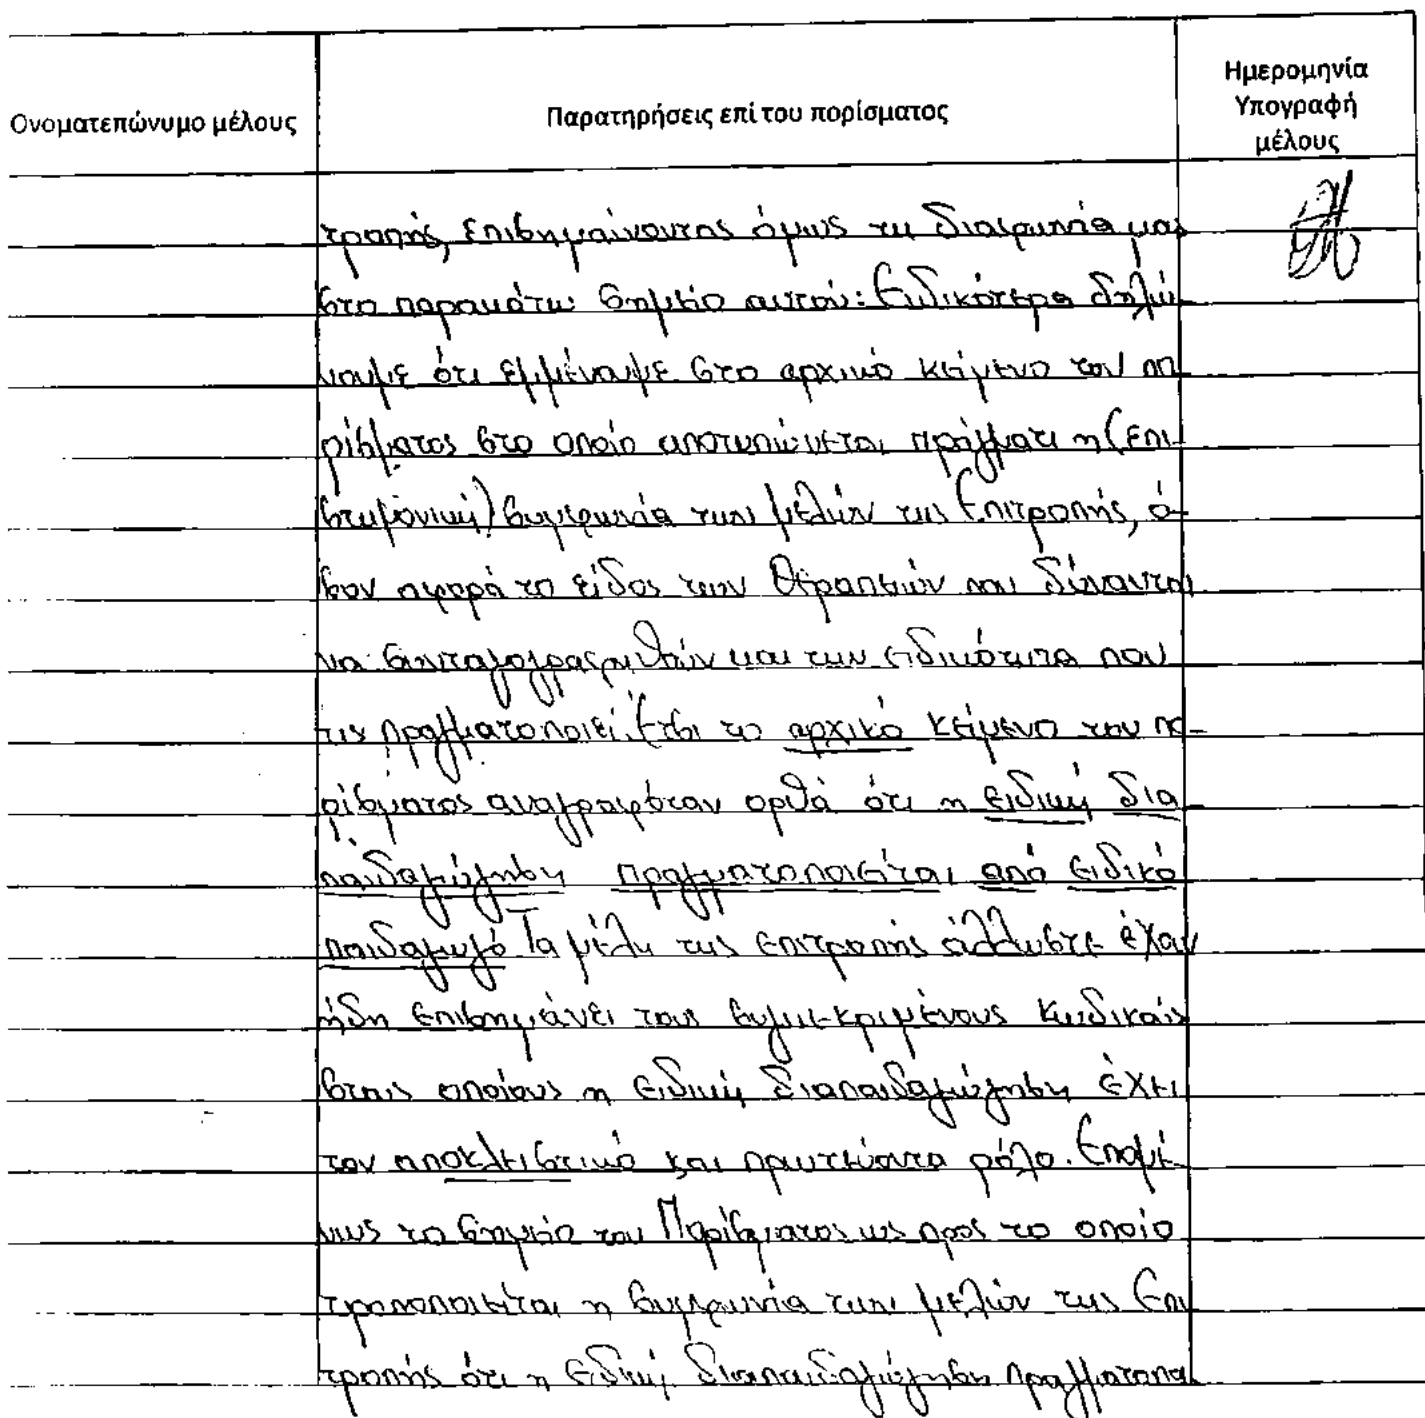 Ονοματεπώνυμο μέλους
Παρατηρήσεις επί του πορίσματος
Ημερομηνία
Υπογραφή
μέλους
τροπής, επισημαίνοντας όμως τη διαφωνία μας
στο παρακάτω σημείο αυτού: Ειδικότερα δηλώ-
νουμε ότι εμμένουμε στο αρχικό κείμενο του πο-
ρίσματος στο οποίο αποτυπώνεται πράγματι η (επι-
στημονική) συμφωνία των μελών της Επιτροπής, ό-
σον αφορά το είδος των θεραπειών που δύνανται
να συνταγογραφηθούν και την ειδικότητα που
τις πραγματοποιεί. Έτσι το αρχικό κείμενο του πο-
ρίσματος αναγραφόταν ορθά ότι η ειδική δια
παιδαγώγηση πραγματοποιείται από ειδικό
παιδαγωγό. Τα μέλη της επιτροπής άλλωστε έχουν
ήδη επισημάνει τους συγκεκριμένους κωδικούς
στους οποίους η ειδική διαπαιδαγώγηση έχει
τον αποκλειστικό και πρωτεύοντα ρόλο. Επομέ-
νως το σημείο του Πορίσματος ως προς το οποίο
τροποποιείται η συμφωνία των μελών της Επι
τροπής ότι η ειδική διαπαιδαγώγηση πραγματοποι